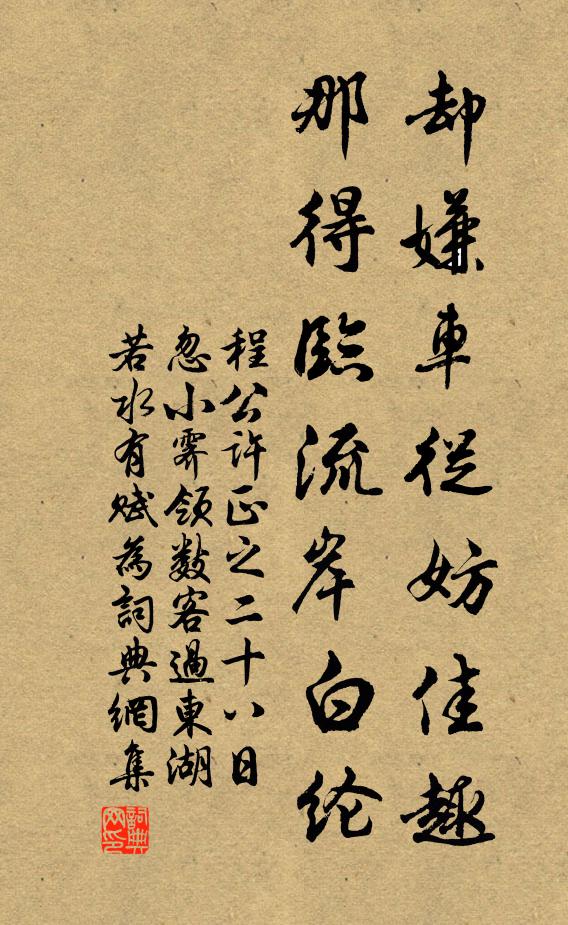 却嫌車從妨佳趣
那得臨流岸白纶
程公許正之二十八日
忽小霽領數客過東湖
若水有赋為詞典網集
詞典网印